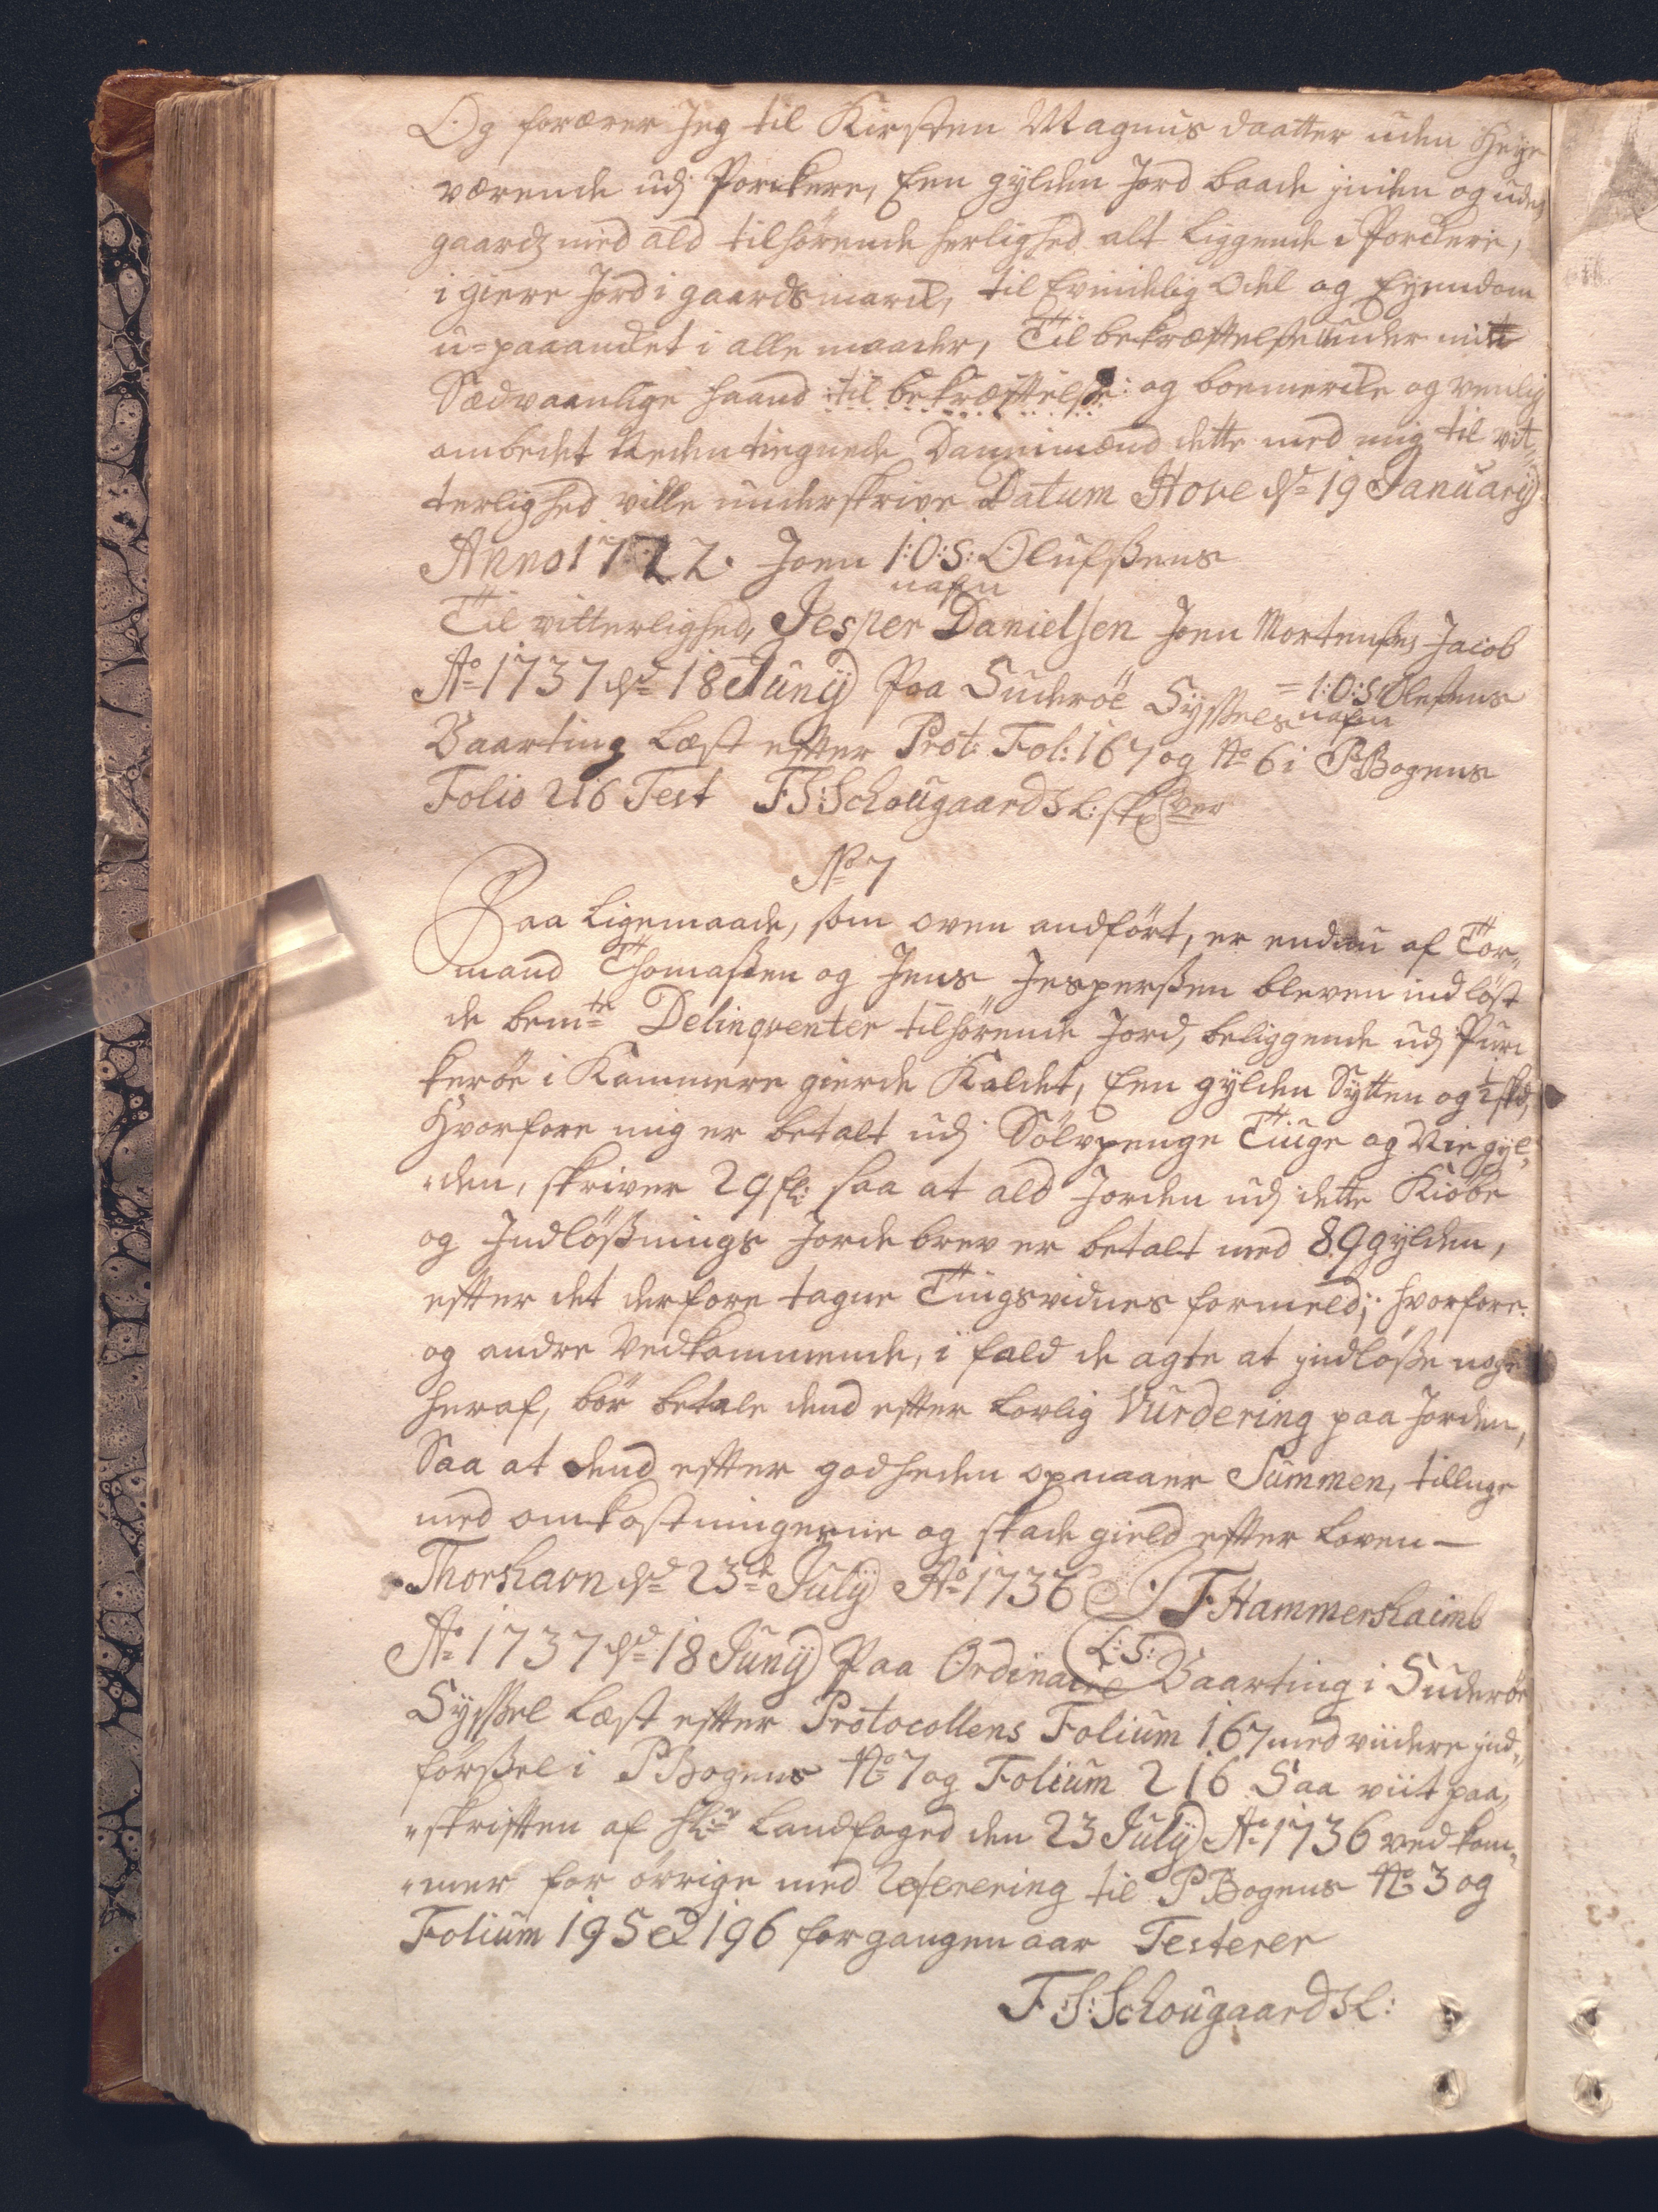 Og forærer Jeg til Kirsten Magnus daatter uden Heye
værende udj Porckere, Een gylden Jord baade jnden og uden
gaards med ald tilhörende herlighed alt liggende i Porckerie,
i giere Jord i gaardsmarck, til Evindelig Odel og Eyendom
u-paaancket i alle maader, Til bekræfftelse under mit
Sædvaanlige haand til bekræfftelse: og boemercke og venlig
ombedet Nedentegnede Dannimænd dette med mig til vit„
terlighed ville underskrive Datum Hove ds 19 January
Anno 1722. Joen I:O:S: Olufssens
nafn
Til vitterlighed, Jesper Danielsen Joen Mortensen Jacob
= I:O:S Olessens
nafn
Ao 1737 dd 18 Junij Paa Suderöe Syssels
Vaarting Læst effter Prot: Fol: 167 og No 6 i PBogens
Folio 216 Test FS:Schougaard SL: skrsver
No 7
Paa Ligemaade, som oven andfört, er endnu af Tor„
mand Thomassen og Jens Jesperssen bleven indlöst
de bemte Delinqventer tilhörende Jord, beliggende udj Pur„
keröe i Kammere gierde Kaldet, Een gylden Sytten og ½ skd,
Hvorfore mig er betalt udj Sölvpenge Tiuge og Nie gyl„
„den, skriver 29 fl: saa at ald Jorden udj dette Kiöbe
og Indlössnings Jordebrev er betalt med 89 gylden,
effter det derfore tagne Tingsvidnes formeld; hvorfore
og andre Vedkommende, i fald de agte at jndlösse noge
heraf, bör betale dend effter Lovlig Vurdering paa Jorden,
Saa at dend effter godheden opnaaer Summen, tillige
med omkostningerne og skade gield effter Loven —
Thorshavn dd 23de July Ao 1736 JF Hammershaimb
(L:S:
Ao 1737 dd 18 Junij Paa Ordinaire Vaarting i Suderöe
Syssel Læst effter Protocollens Folium 167 med viidere jnd„
förssel i PBogens No 7 og Folium 216 Saa viit paa„
„skrifften af Hr Landfoged den 23 July Ao 1736 vedkom„
„mer for övrige med Referering til PBogens No 3 og
Folium 195 & 196 forgangen aar Testerer
F:S:Schougaard SL: